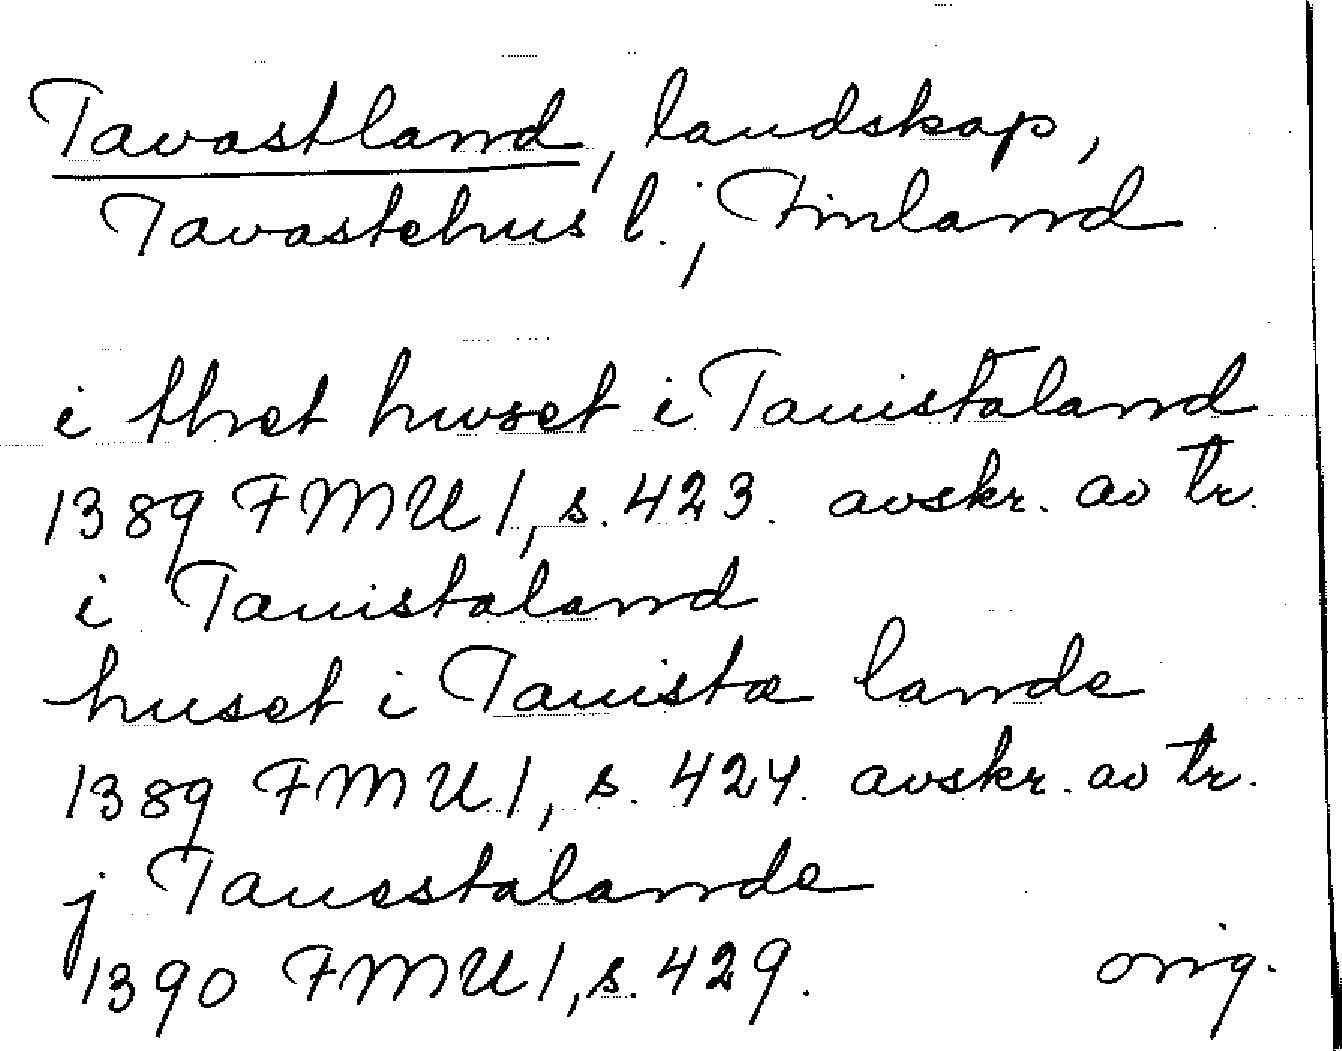 Tavastland, landskap,
Tavastehus l., Finland
i thet hwset i Tauistaland
1389 FMU 1, s. 423. avskr. av tr.
i Tauistaland
huset i Tauista lande
1389 FMU 1, s. 424. avskr. av tr.
j Tauestalande
1390 FMU 1, s. 429. orig.